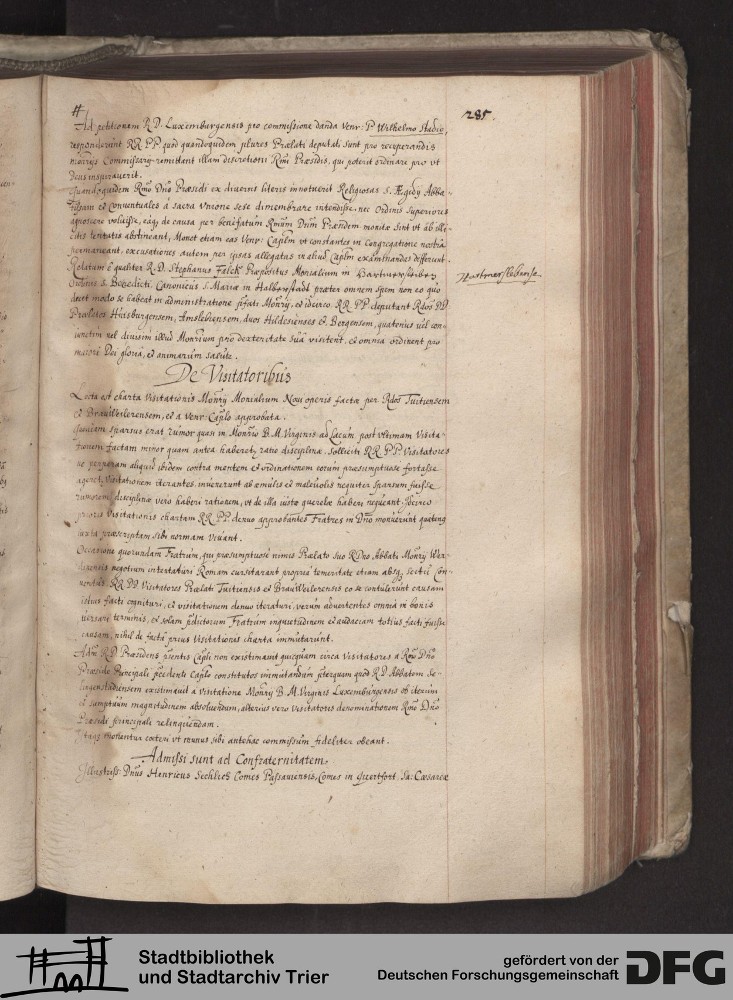 285.
#
Ad petitionem R D. Luxemburgensis pro commissione danda Venr: P Wilhelmo Stadio,
responderunt RR PP quod quandoquidem plures Prælati deputati sunt pro recuperandis
monrijs Commissarij remittant illam discretioni Rmi Præsidis, qui poterit ordinare pro vt
Deus inspirauerit.
Quandoquidem Rmo Dno Præsidi ex diuersis literis innotuerit Religiosas S. Ægidij Abba-
tissam et Conuentuales à sacra Vnione sese dimembrare intendisse, nec Ordinis Superiores
agnoscere voluisse, eaq; de causa per Rmum Dnm Præsidem monitæ sint vt ab
abstineant, Monet etiam eas Venr: Caplm vt constantes in Congregatione nostra
permaneant, excusationes autem per ipsas allegatas in aliud Caplm examinandas differunt.
Relatum è qualiter R. D. Stephanus Falck Præpositus Monialium in
Hathmerslebiense.
Ordinis S. Benedicti, Canonicus S. Mariæ in Halberstadt præter omnem spem non eo quo
decet modo se habeat in administratione præfati Monrij, et idcirco RR PP deputant Rdos DD
Prælatos Huisburgensem, Amslebensem, duos Hildesienses et Bergensem, quatenus vel con-
iunctim vel diuisim illud Monrium pro dexteritate suâ visitent, et omnia ordinent pro
maiori Dei gloria, et animarum salute.
De Visitatoribus
Lecta est charta Visitationis Monrij Monialium Noui operis facta per Rdos Tuitiensem
et Brauweilerensem, et à Venr: Caplo approbata.
Quoniam sparsus erat rumor quasi in Monrio B. M. Virginis ad Lacum post vltimam Visita-
tionem factam minor quam antea haberetur ratio disciplinæ. Solliciti RR PP Visitatores
ne perperam aliquid ibidem contra mentem et ordinationem eorum præsumptuose fortasse
ageret, Visitationem iterantes, inuenerunt ab æmulis et maleuolis nequiter sparsum fuisse
rumorem, disciplinæ vero haberi rationem, vt de illa iustæ querelæ haberi nequeant. Idcirco
prioris Visitationis chartam RR PP. denuo approbantes Fratres in Dno monuerunt quateng
iuxta præscriptam sibi normam viuant.
Occasione quorundam Fratrum, qui præsumptuosè nimis Prælato suo RDno Abbati Monrij Wer-
dinensis negotium intentaturi Romam cursitarant propria temeritate etiam absq; Con-
RR PP Visitatores Prælati Tuitiensis et BrauWeilerensis eo se contulerunt causam
istius facti cognituri, et visitationem denuo iteraturi, verùm aduertentes omnia in bonis
uersari terminis, et solam prædictorum Fratrum inquietudinem et audaciam totius facti fuisse
causam, nihil de factâ prius Visitationis charta immutarunt.
Adm RD Præsidens præsentis Capli non existimauit quicquam circa Visitatores à Rmo Dno
Præside Principali præcedenti Caplo constitutos immutandum præterquam quod RD Abbatem Se-
lingenstadiensem existimaud à Visitatione Monrij B. M. Virginis Luxemburgensis ob itineris
et sumptuum magnitudinem absoluendum, alterius vero Visitatoris denominationem Rmo Dno
Præsidi principali relinquendam.
Itaq; monentur cæteri vt munus sibi antehac commissum fideliter obeant.
Admissi sunt ad Confraternitatem
Illustriss: Dnus Henricus Schlick Comes Passauiensis, Comes in Sa: Cæsareæ
Stadtbibliothek
und Stadtarchiv Trier
gefördert von der
Deutschen Forschungsgemeinschaft
DFG